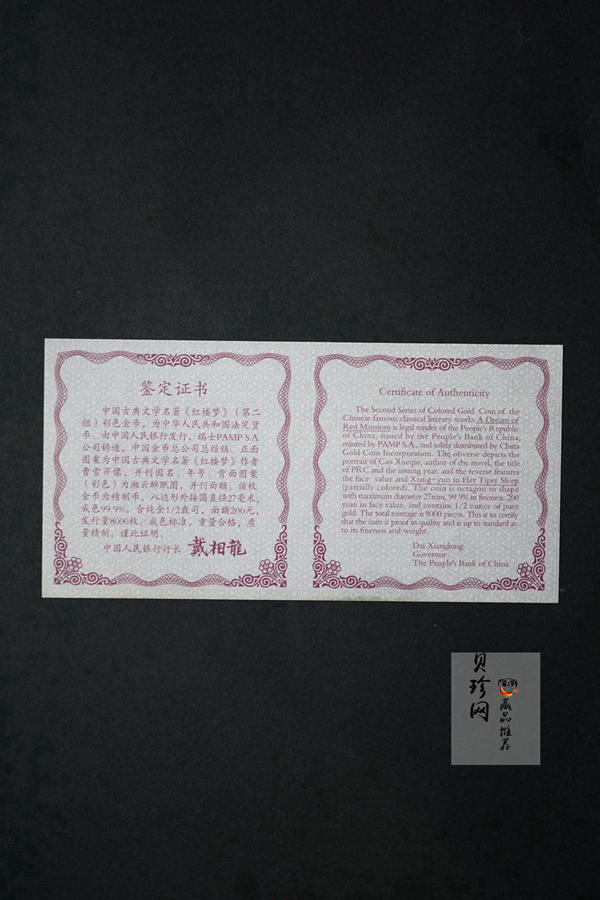 鉴定证书
中国古典文学名著《红楼梦》(第二
组)彩色金币，为中华人民共和国法定货
币，由中国人民银行发行，瑞士PAMP S.A.
公司铸造，中国金币总公司总经销。正面
图案为中国古典文学名著《红楼梦》作者
曹雪芹像，并刊国名、年号，背面图案
(彩色)为湘云醉眠图，并刊面额。该枚
金币为精制币，八边形外接圆直径27毫米，
成色99.9%，含纯金1/2盎司，面额200元，
发行量8000枚。成色标准，重量合格，质
量精制，谨此证明。
中国人民银行行长 戴相龍
Certificate of Authenticity
The Second Series of Colored Gold Coin of the
Chinese famous classical literary works A Dream of
Red Mansions is legal tender of the People's Republic
of China, issued by the People's Bank of China,
minted by PAMP S.A., and solely distributed by China
Gold Coin Incorporation. The obverse depicts the
portrait of Cao Xueqin, author of the novel, the title
of PRC and the issuing year, and the reverse features
the face value and Xiang-yun in Her Tipsy Sleep
(partially colored). The coin is octagon in shape
with maximum diameter 27mm, 99.9% in fineness, 200
yuan in face value, and contains 1/2 ounce of pure
gold. The total mintage is 8000 pieces. This is to certify
that the coin is proof in quality and is up to standard as
to its fineness and weight.
Dai Xianglong
Governor
The People's Bank of China
贝珍网
藏品推荐